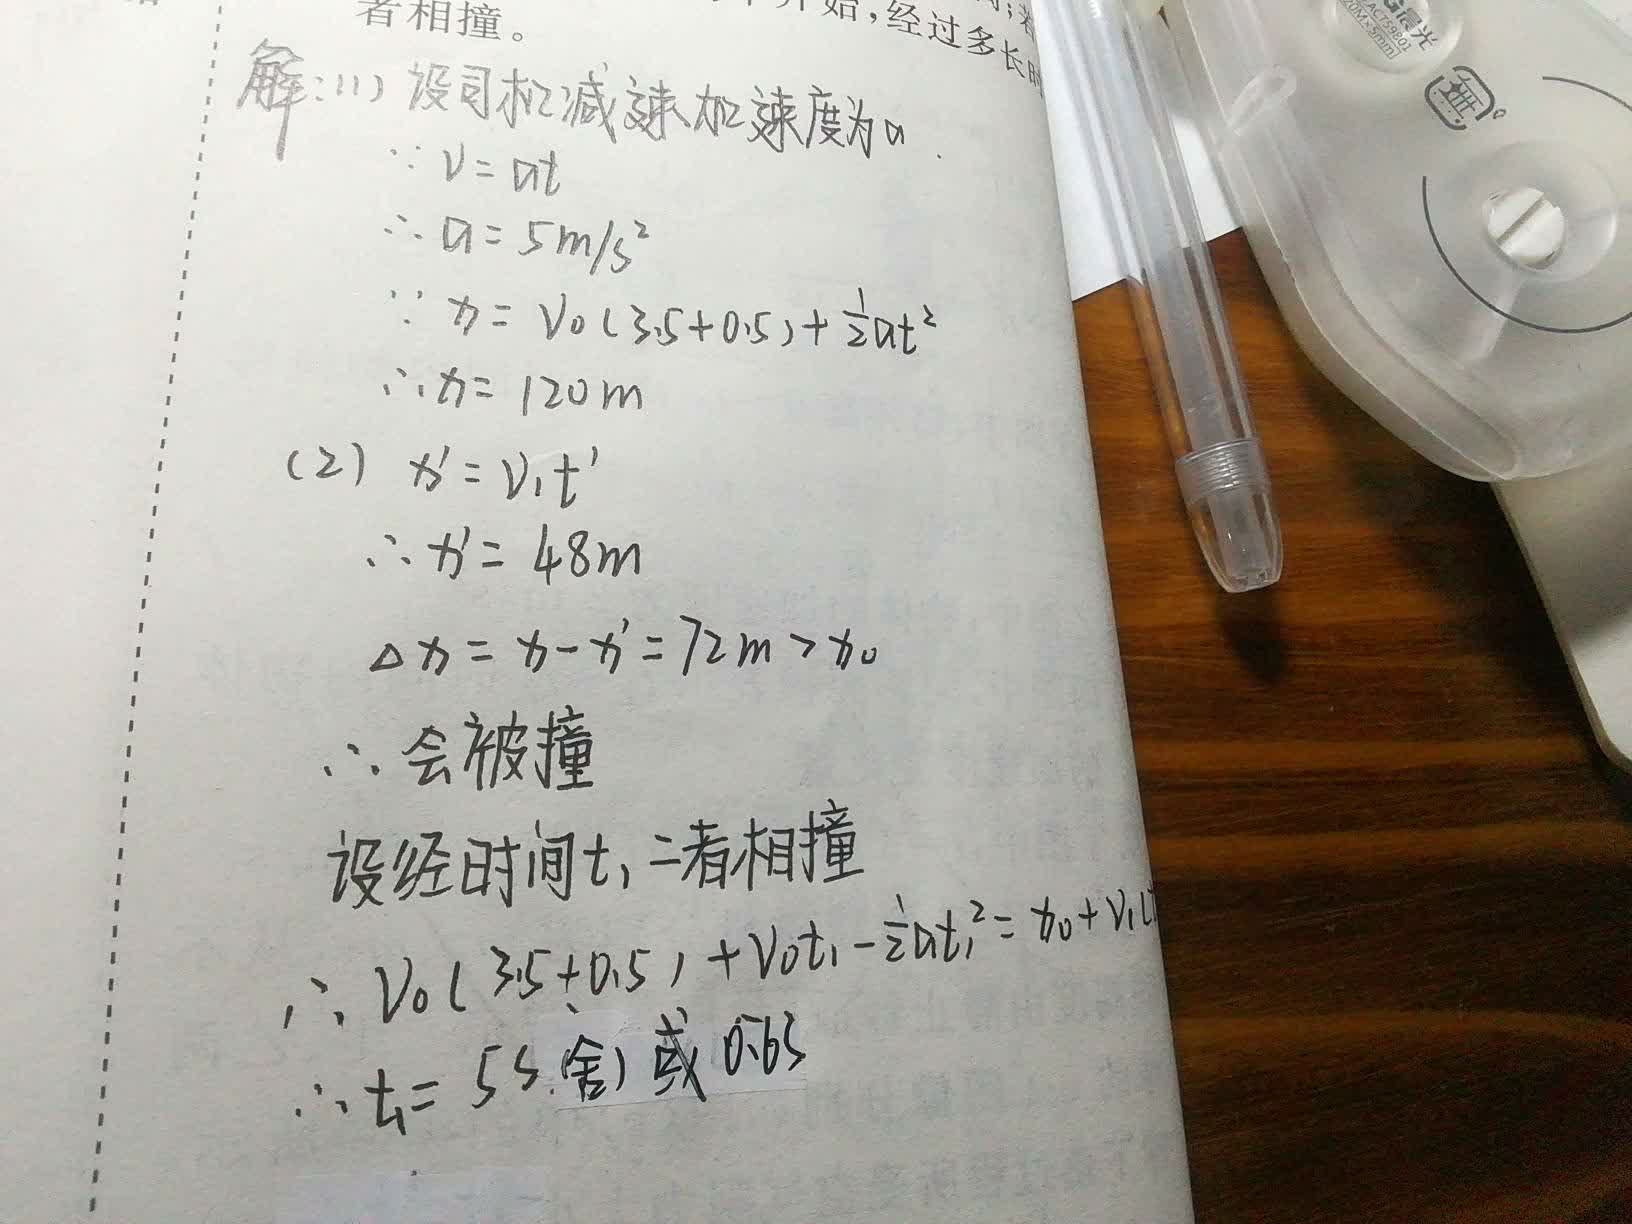 开始,经过多长时
者相撞。
解:(1) 设司机减速加速度为a.
∵ v=at
∴ a=5m/s²
∵ x=v₀(3.5+0.5)+½at²
∴ x=120m
(2) x'=v₁t'
∴ x'=48m
△x=x-x'=72m>x₀
∴ 会被撞
设经时间t₁二者相撞
∴ v₀(3.5+0.5)+v₀t₁-½at₁²=x₀+v₁(
∴ t₁=5s(舍)或0.6s
晨光